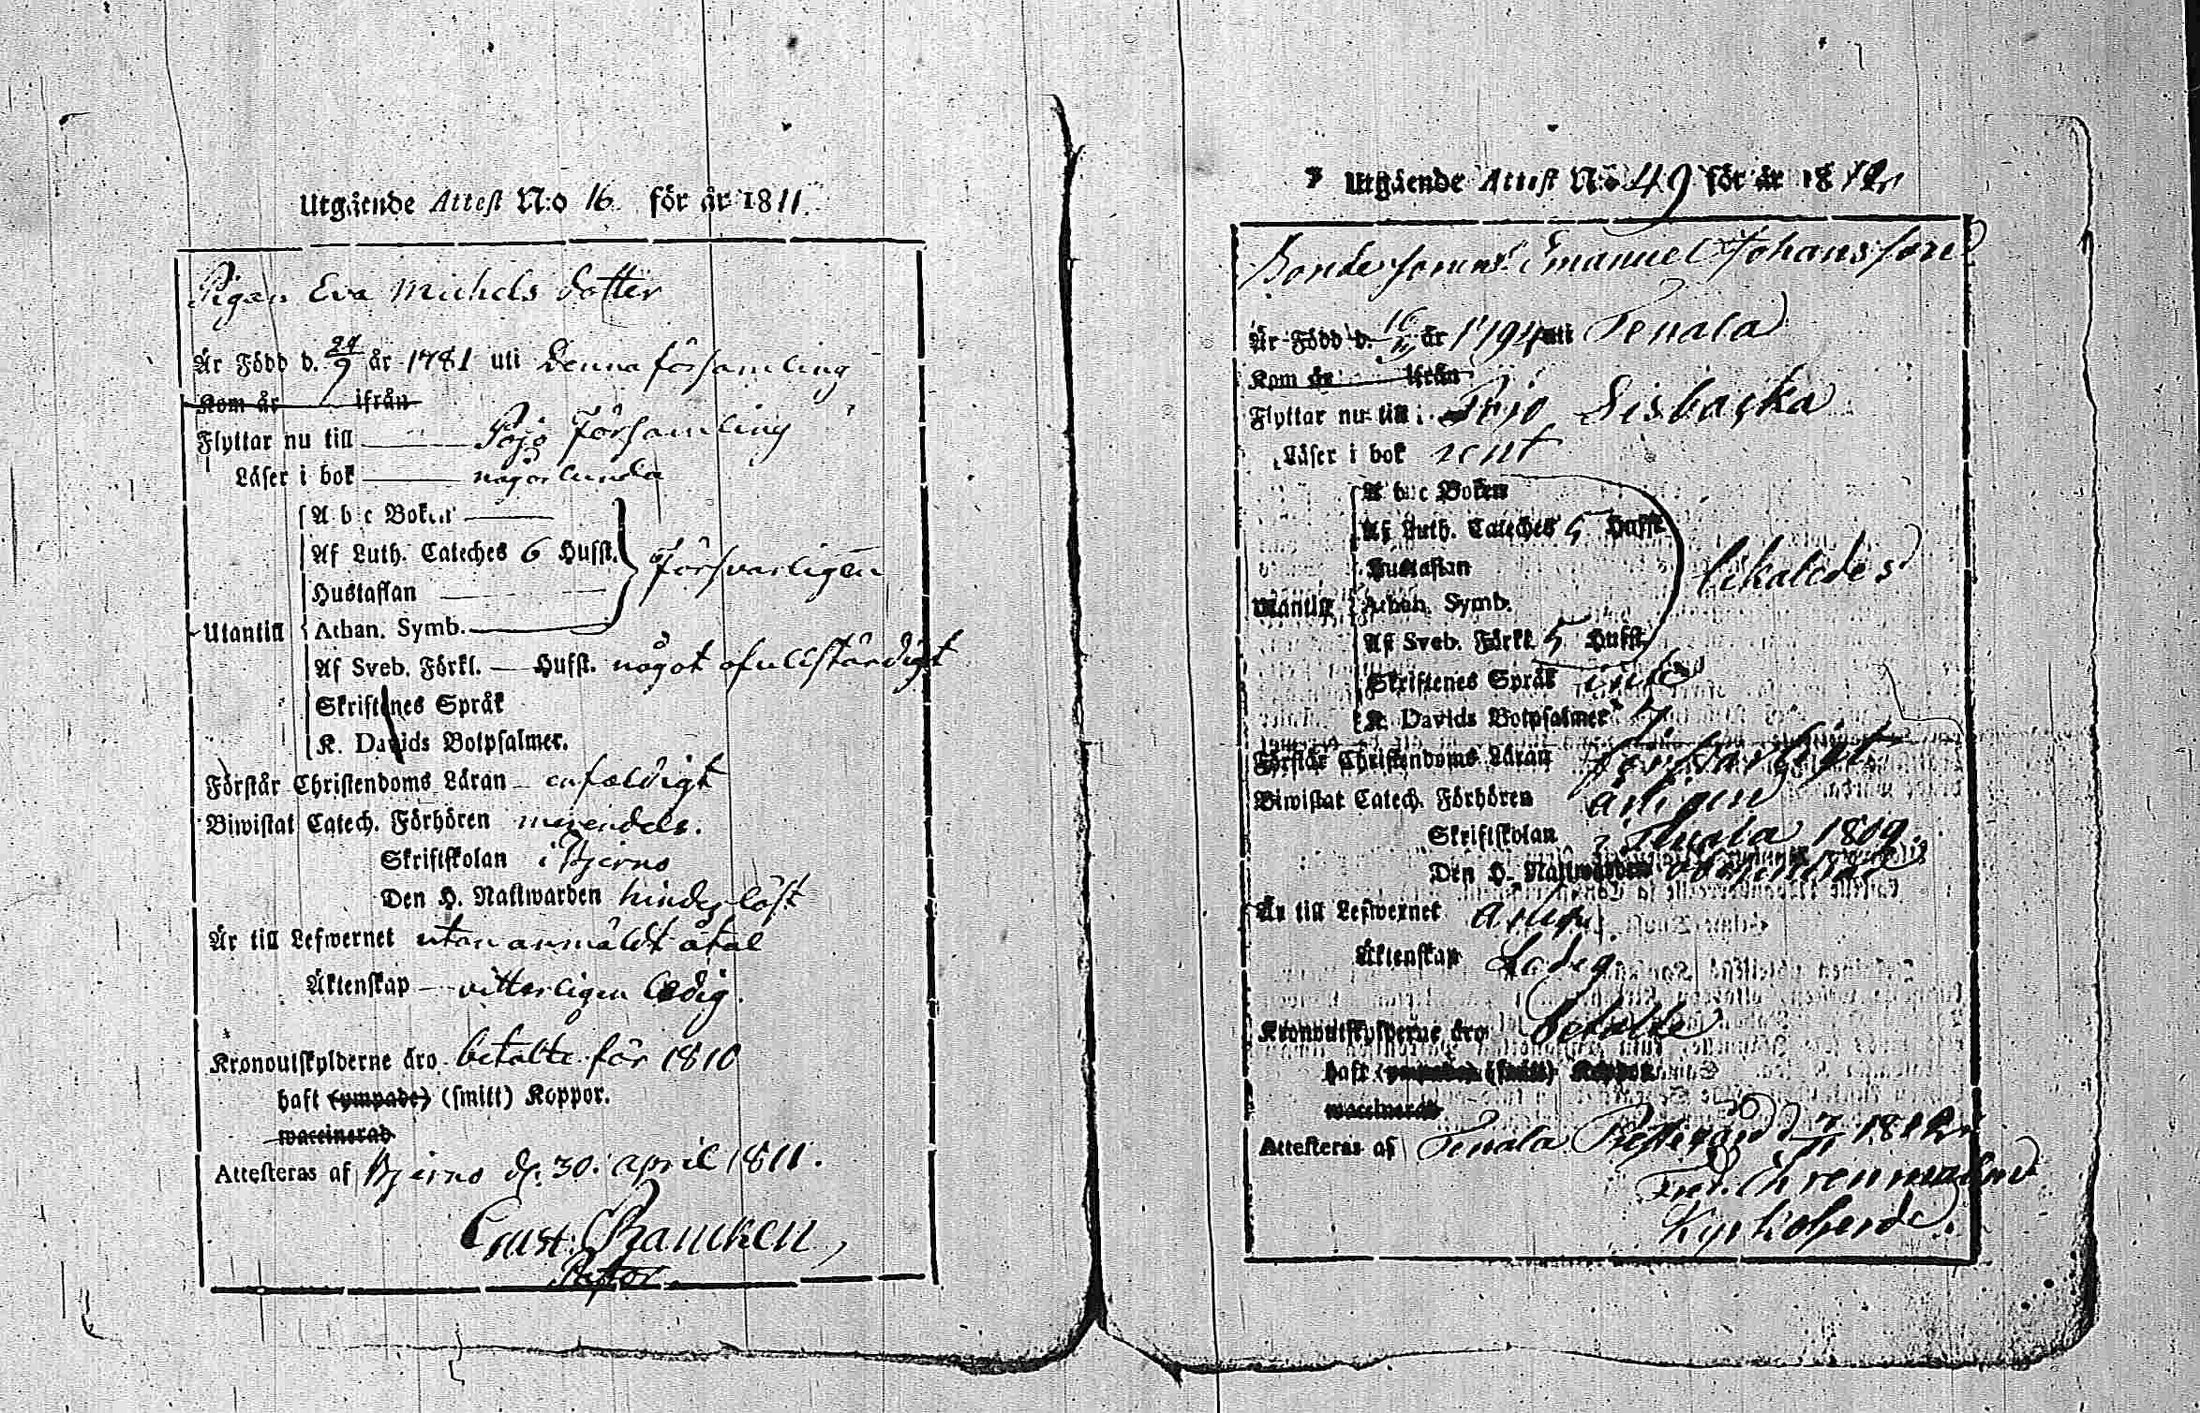 Utgående Attest N:o 16. för år 1811.
Pigan Eva Michels dotter
Är Född d. 24/9 år 1781 uti Denna församling
Kom år ifrån
Flyttar nu till Pojo Församling
Läser i bok någorlunda
A b c Boken
Af Luth. Cateches 6 Hufst.
Försvarligen
Hustaflan
Utantill
Athan. Symb.
Af Sveb. Förkl. Hufst. något ofullständigt
Skriftenes Språk
K. Davids Botpsalmer.
Förstår Christendoms Läran enfaldigt
Biwistat Catech. Förhören merendels.
Skriftskolan i Bjerno
Den H. Nattwarden hinderslöst
Är till Lefwernet utan anmäldt åtal
Äktenskap vitterligen ledig.
Kronoutskylderne äro betalte för 1810
haft (ympade) (smitt) Koppor.
waccinerad
Attesteras af Bjerno d. 30. april 1811.
Gust. Bancken
Pastor
Utgående Attest N:o 49 för år 1812
Bondesonen Emanuel Johansson
Är Född d. 16 år 1794 uti Tenala
Kom år ifrån
Flyttar nu till Pojo Lisbacka
Läser i bok rent
A b c Boken
Af Luth. Cateches 5 Hufst.
likaledes
Hustaflan
Utantill
Athan. Symb.
Af Sveb. Förkl. 5 Hufst.
Skriftenes Språk
K. Davids Botpsalmer
Förstår Christendoms Läran försvarligt
Biwistat Catech. Förhören årligen
Skriftskolan i Tenala 1809
Den H. Nattwarden
Är till Lefwernet
Äktenskap Ledig
Kronoutskylderne äro betalte
haft (ympade) (smitt) Koppor
waccinerad
Attesteras af Tenala Prestegård d. 7/11 1812
Fred. Ehrenmalm
Kyrkoherde.